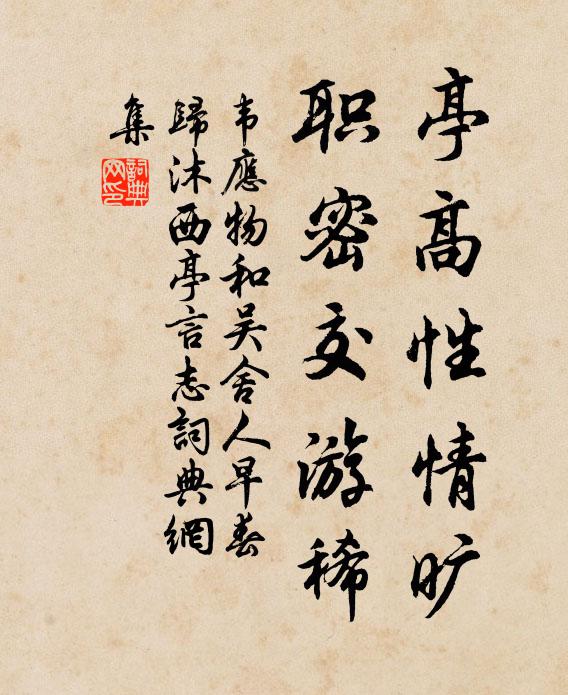 亭高性情旷
职密交游稀
韦應物和吴舍人早春
歸沐西亭言志詞典網
集
詞典网印